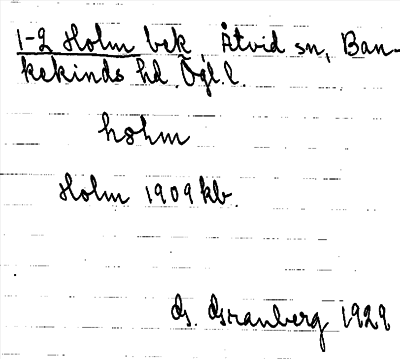 1-2 Holm bek, Åtvid sn, Ban-
kekinds hd. Ögl. l.
holm
Holm 1909 kb.
1929